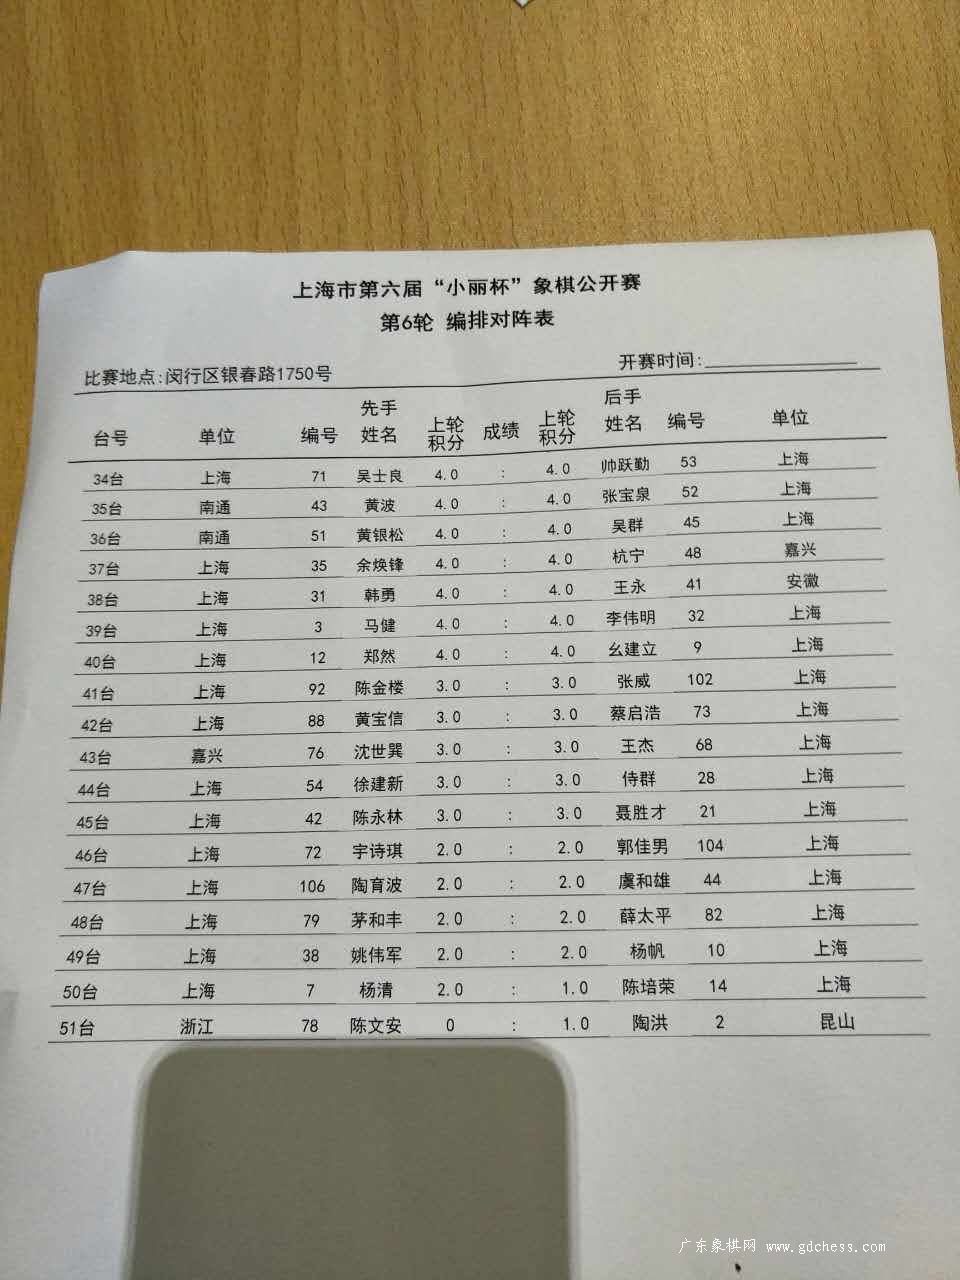 上海市第六届“小丽杯”象棋公开赛
第6轮 编排对阵表
比赛地点:闵行区银春路1750号 开赛时间:
台号 单位 编号 先手姓名 上轮积分 成绩 上轮积分 后手姓名 编号 单位
34台 上海 71 吴士良 4.0 : 4.0 帅跃勤 53 上海
35台 南通 43 黄波 4.0 : 4.0 张宝泉 52 上海
36台 南通 51 黄银松 4.0 : 4.0 吴群 45 上海
37台 上海 35 余焕锋 4.0 : 4.0 杭宁 48 嘉兴
38台 上海 31 韩勇 4.0 : 4.0 王永 41 安徽
39台 上海 3 马健 4.0 : 4.0 李伟明 32 上海
40台 上海 12 郑然 4.0 : 4.0 幺建立 9 上海
41台 上海 92 陈金楼 3.0 : 3.0 张威 102 上海
42台 上海 88 黄宝信 3.0 : 3.0 蔡启浩 73 上海
43台 嘉兴 76 沈世巽 3.0 : 3.0 王杰 68 上海
44台 上海 54 徐建新 3.0 : 3.0 侍群 28 上海
45台 上海 42 陈永林 3.0 : 3.0 聂胜才 21 上海
46台 上海 72 宇诗琪 2.0 : 2.0 郭佳男 104 上海
47台 上海 106 陶育波 2.0 : 2.0 虞和雄 44 上海
48台 上海 79 茅和丰 2.0 : 2.0 薛太平 82 上海
49台 上海 38 姚伟军 2.0 : 2.0 杨帆 10 上海
50台 上海 7 杨清 2.0 : 1.0 陈培荣 14 上海
51台 浙江 78 陈文安 0 : 1.0 陶洪 2 昆山
广东象棋网 www.gdchess.com